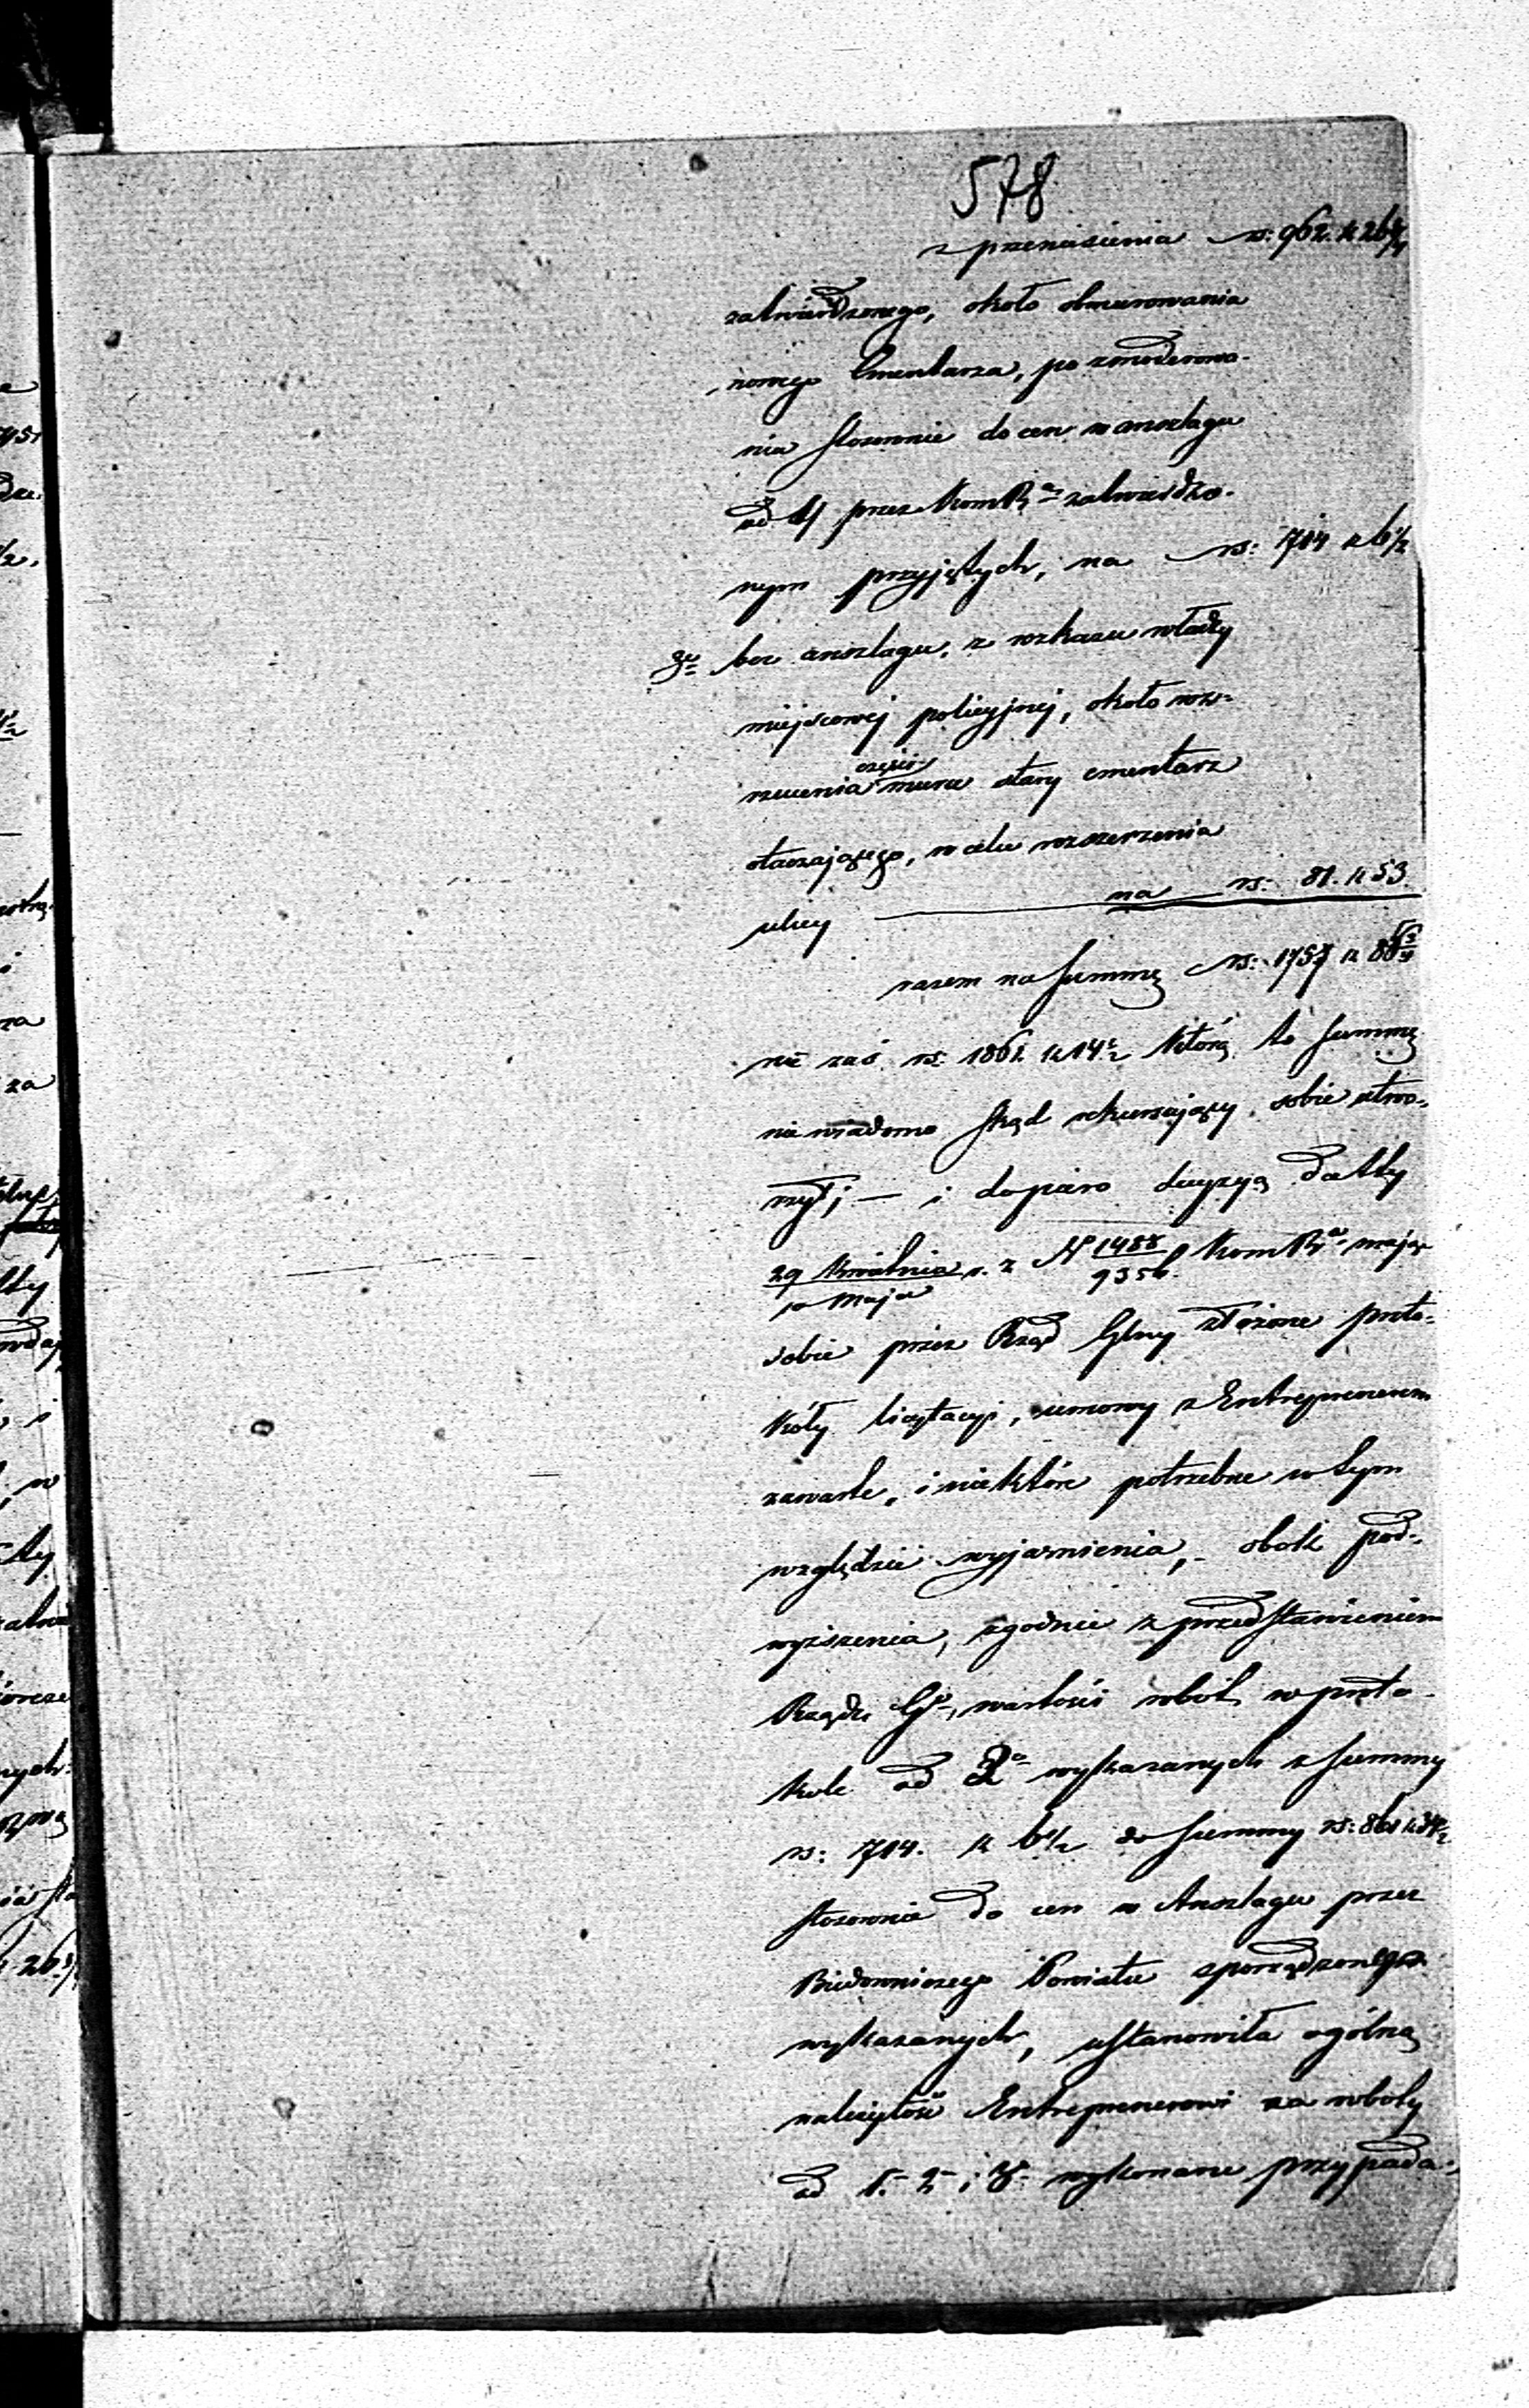 578
z przeniesienia rs: 962. k 26 3/4
zatwierdzonego, około obmurowania
nowego Cmentarza, po zmoderowa-
nia stosownie do cen w anszlagu
ad 1/ przez KomRą zatwierdzo-
nym przyjętych, na rs: 714 k 6 1/2
3e bez anszlagu, z rozkazu władzy
miejscowej policyjnej, około roz-
rzucenia części muru stary cmentarz
otaczającego, w celu rozszerzenia
ulicy na rs: 81. k 53
razem na summę rs: 1757 k 86 3/4
nie zaś rs: 1861 k 14 1/2 którą to summę
nie wiadomo skąd rekursujący sobie utwo-
rzył; — i dopiero decyzyą datty
29 Kwietnia r. z N 1488 KomRa mając
10 Maja 9356
sobie przez Rząd Gbny złożone proto-
kóły licytacyi, umowy z Entreprenerem
zawarte, i niektóre potrzebne w tym
względzie wyjaśnienia, obok pod-
wyższenia, zgodnie z przedstawieniem
Rządu Go, wartości robót w proto-
kole ad 2o wykazanych z summy
rs: 714. k 6 1/2 do summy rs: 861
stosownie do cen w Anszlagu przez
Budowniczego Powiatu sporządzonego
wykazanych, ustanowiła ogólną
należytość Entreprenerowi za roboty
ad 1. 2 i 3. wykonane przypada-